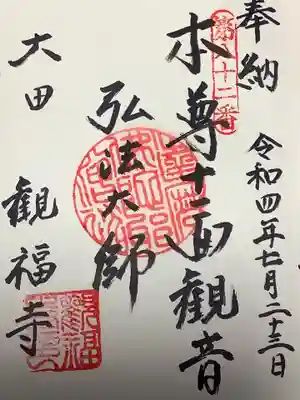 奉納
令和四年七月二十三日
本尊十一面観音
弘法大師
大田 観福寺